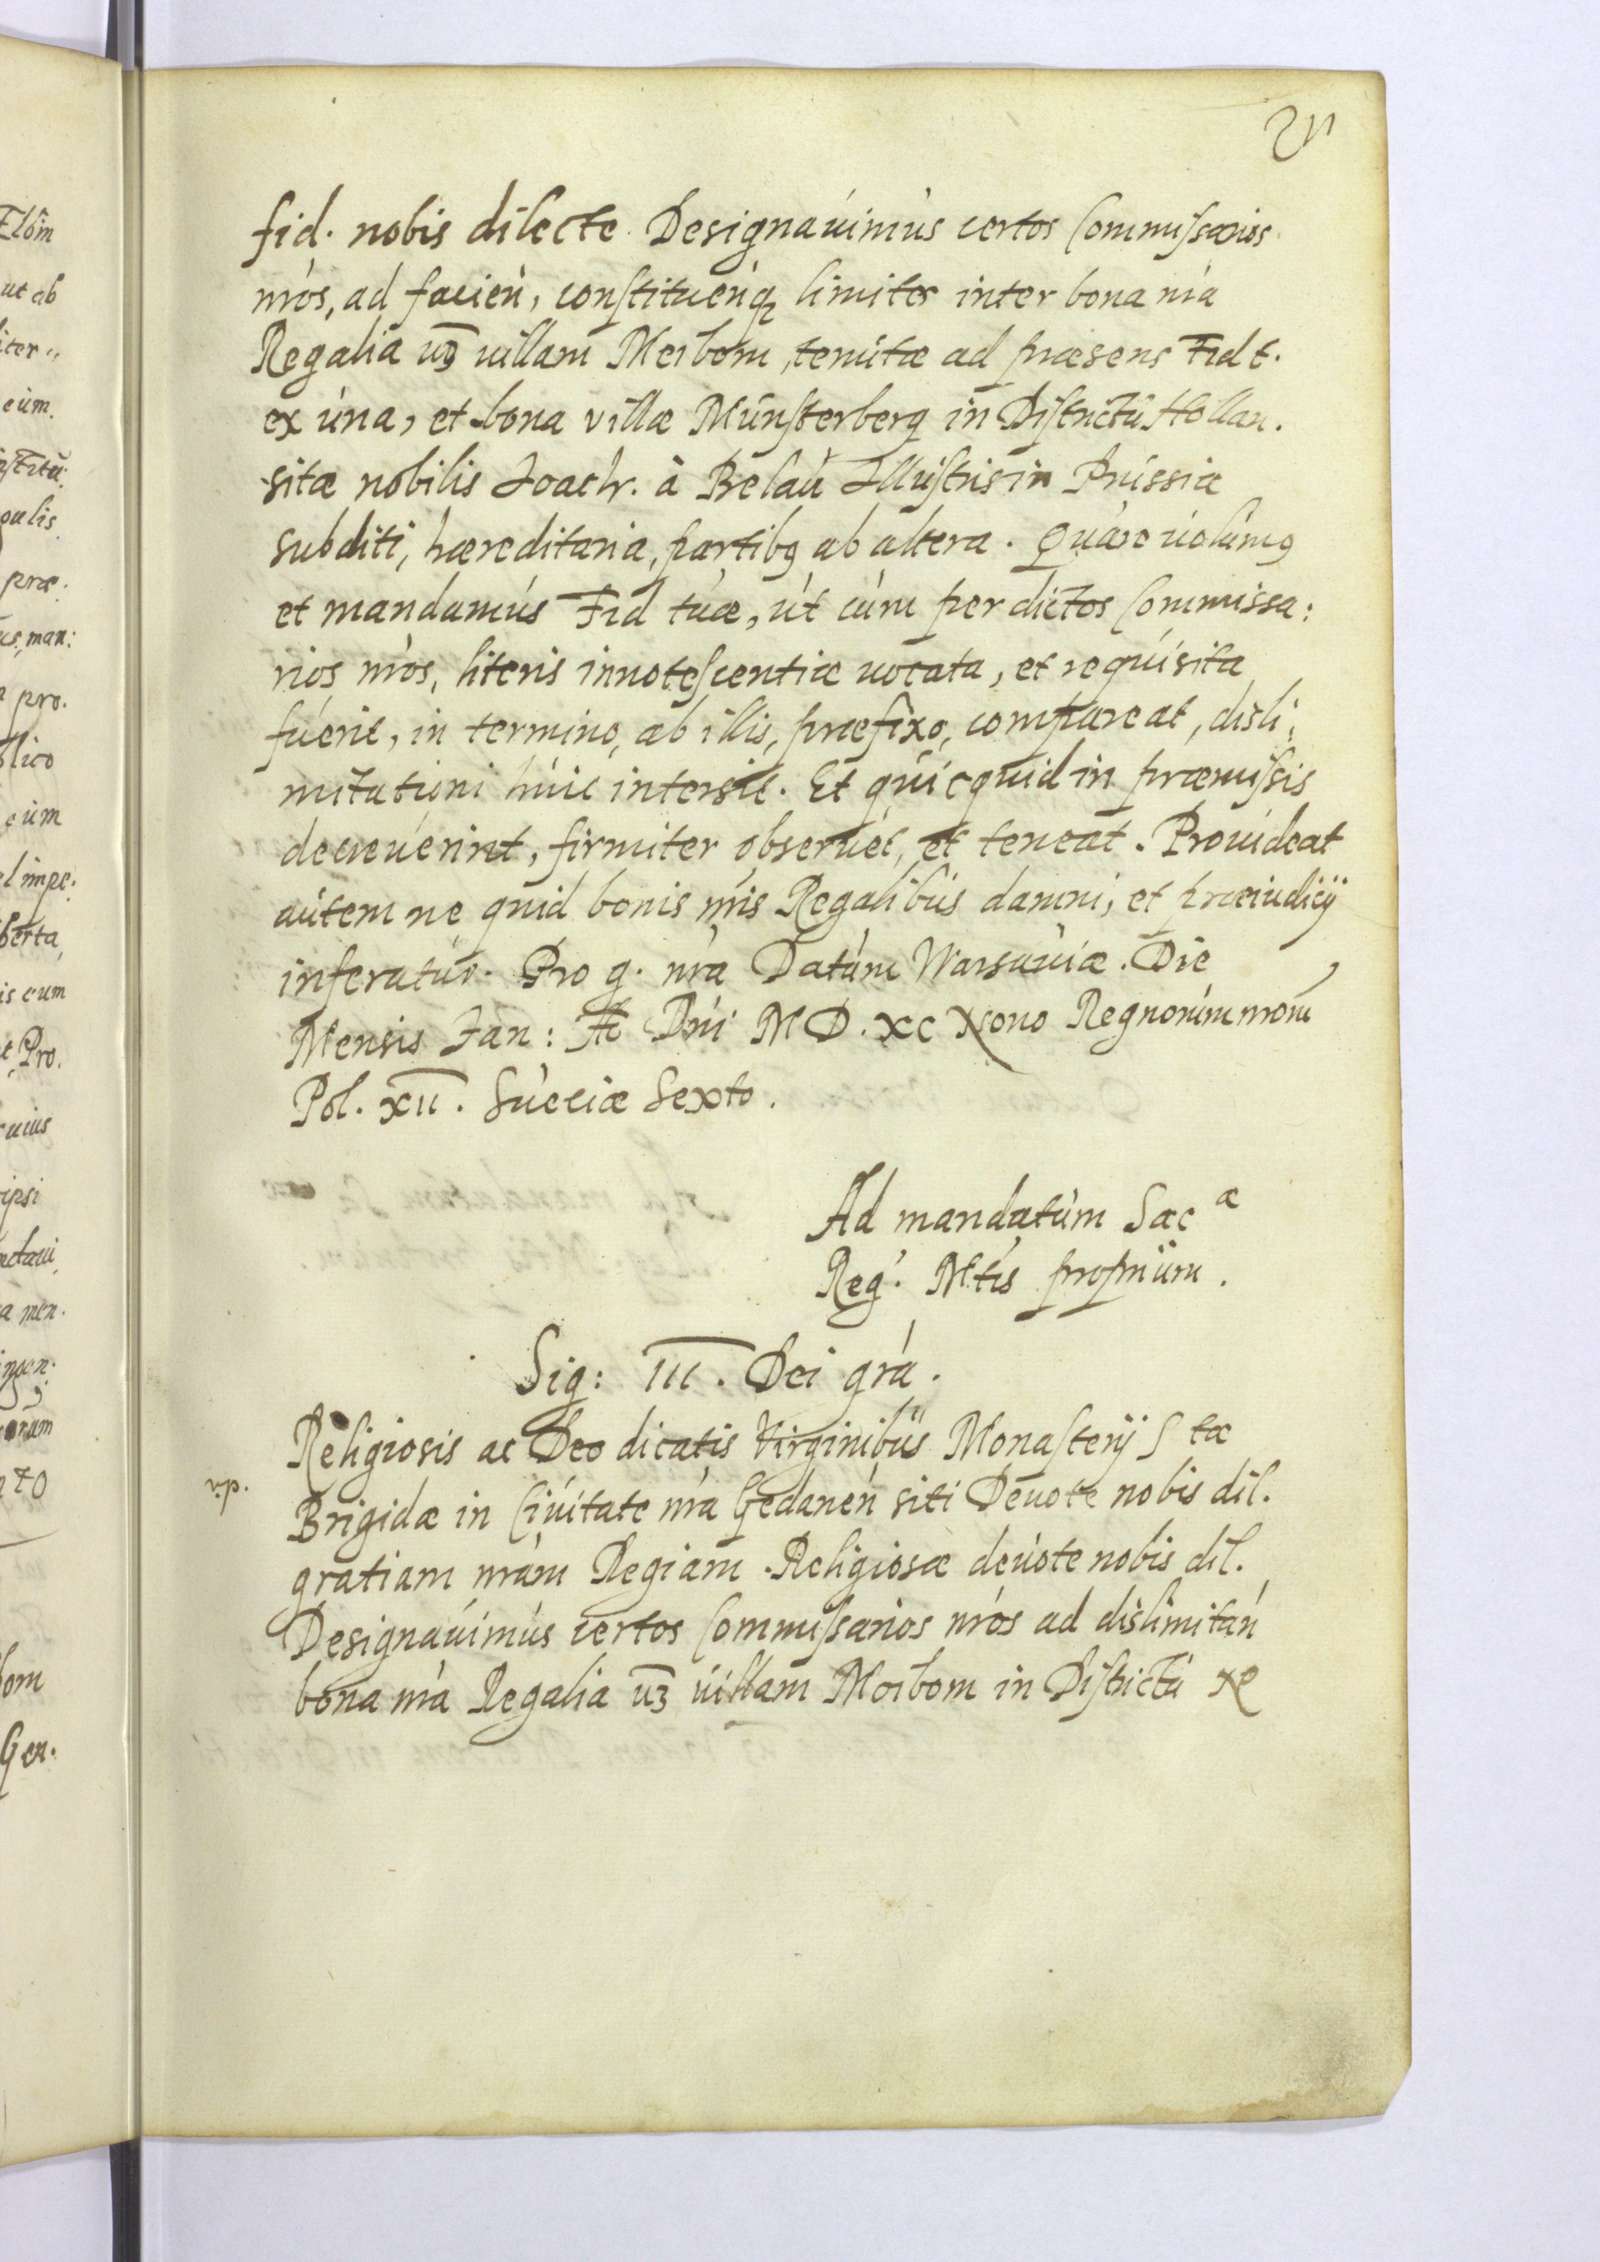 fid. nobis dilecte Designauimus certos Commissarios
nros, ad facien, constituenq limites inter bona nra
Regalia uz uillam Meibom, tenutæ ad præsens Fid t.
ex una, et bona villæ Munsterberg in Districtu Hollan.
sitæ nobilis Joach. à Belau Illustris in Prussia
subditi, hæreditaria, partibq ab altera. Quare uolumq
et mandamus Fid tuæ, ut cum per dictos Commissa:
rios nros, literis innotescentiæ uocata, et requisita
fuerit, in termino, ab illis, præfixo, compareat, disli,
mitationi huic intersit. Et quicquid in præmissis
decreuerint, firmiter obseruet, et teneat. Prouideat
autem ne quid bonis nris Regalibus damni, et præiudicij
inferatur. Pro g. nra Datum Warsauiæ. Die
Mensis Jan: Ao Dni MD.XC Nono Regnorum nrorum
Pol. XII. Sueciæ Sexto.
Ad mandatum Sac æ
Reg. Mtis proprium.
Sig: III. Dei gra.
Religiosis ac Deo dicatis Virginibus Monasterij S tæ
Brigidæ in Ciuitate nra Gedanen siti Deuote nobis dil.
gratiam nram Regiam. Religiosæ deuote nobis dil.
Designauimus certos Commissarios nros ad dislimitan
bona nra Regalia uz uillam Moibom in Districtu